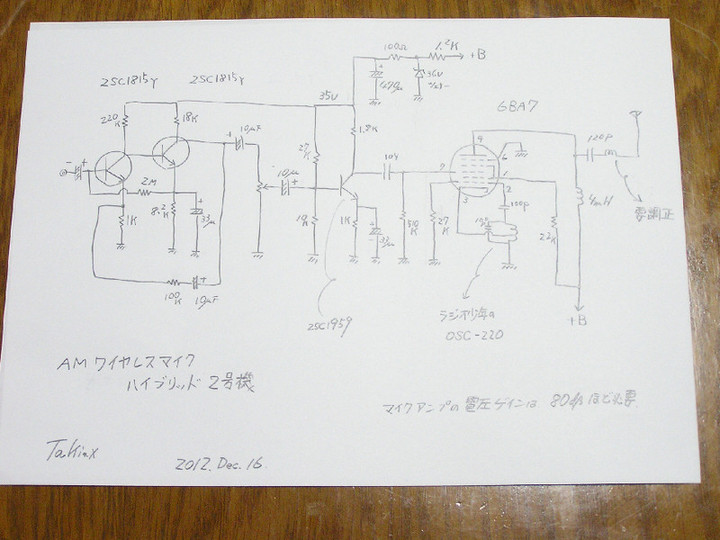 100Ω
1.2K
+B
2SC1815Y
2SC1815Y
35V
470μ
36V
6BA7
220K
18K
10μF
1.2K
120P
27K
10μ
104
9
6
7
1
2
3
2M
8.2K
33μ
1K
10K
1K
33μ
510K
27K
100P
22K
4mH
要調正
100K
10μF
2SC1959
ラジオ少年の
OSC-220
+B
AMワイヤレスマイク
ハイブリッド2号機
マイクアンプの電圧ゲインは 80倍ほど必要
Takinx
2012.Dec.16.